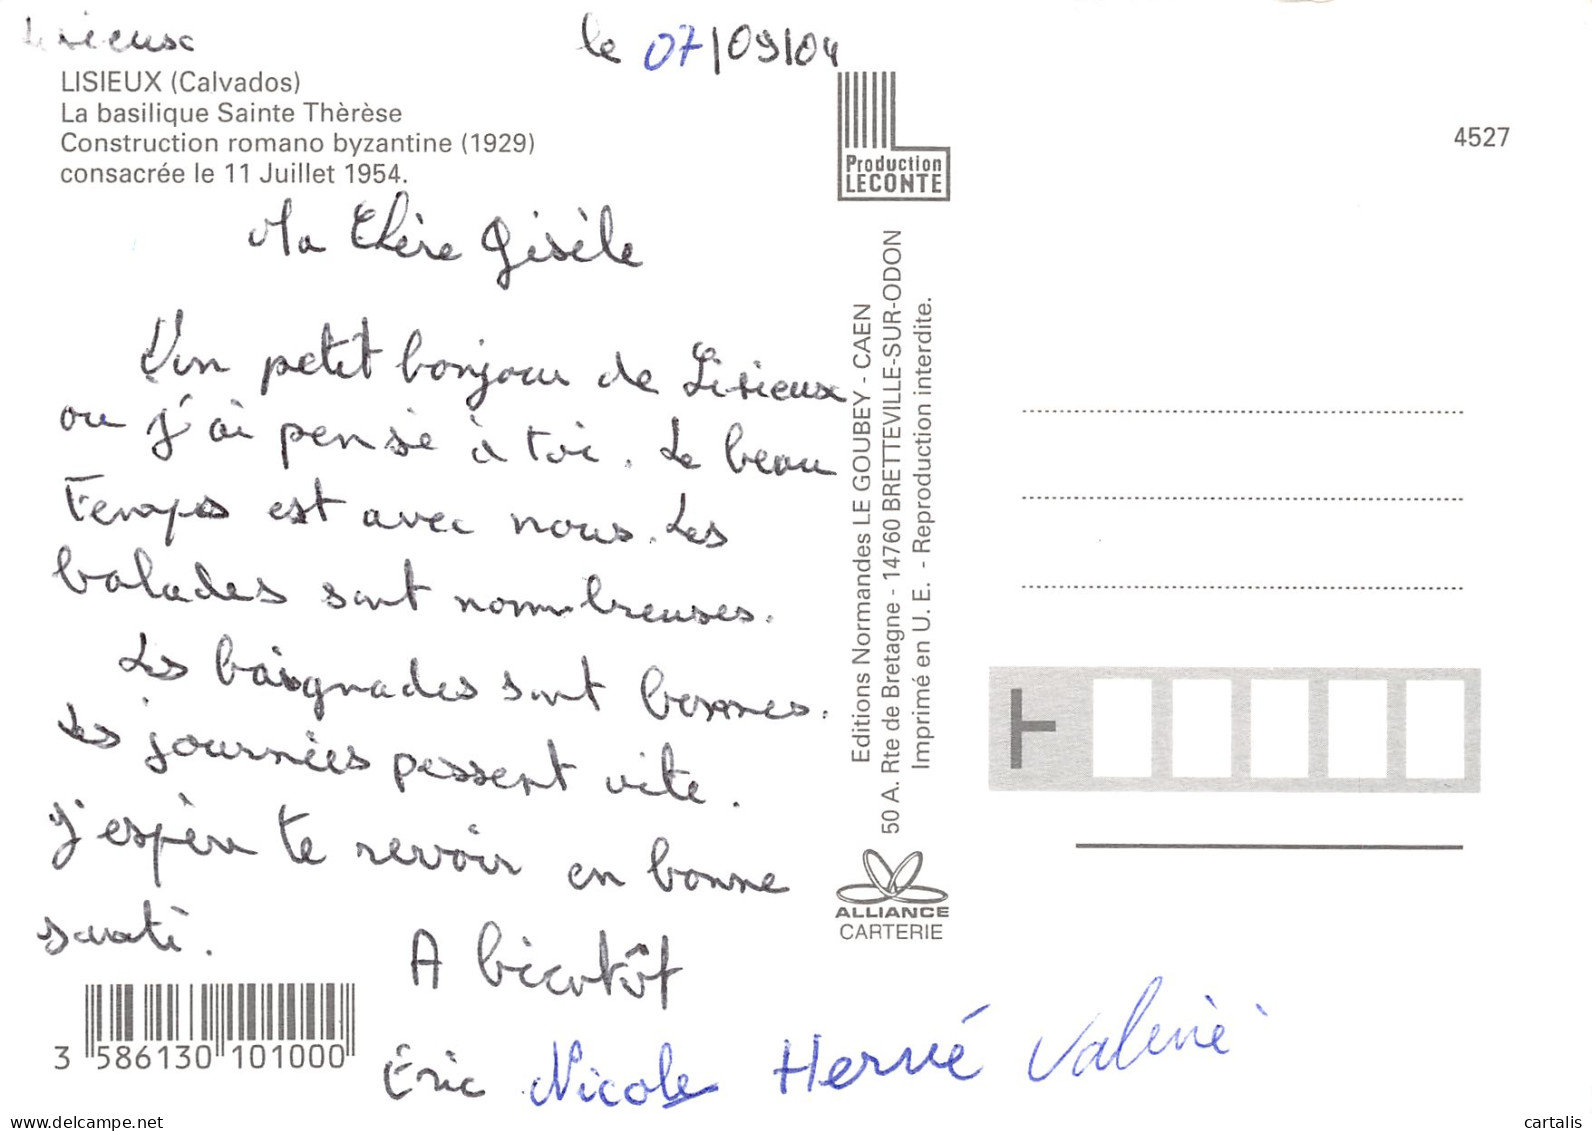 Lisieux
le 07/09/04
LISIEUX (Calvados)
La basilique Sainte Thèrèse
Construction romano byzantine (1929)
consacrée le 11 Juillet 1954.
Production
LECONTE
4527
Ma Chère Gisèle
Un petit bonjour de Lisieux
ou j'ai pensé à toi. Le beau
Temps est avec nous. Les
balades sont nombreuses.
Les baignades sont bonnes.
Les journées passent vite.
J'espère te revoir en bonne
santé.
A bientôt
Éric Nicole Hervé Valérie
Editions Normandes LE GOUBEY - CAEN
50 A. Rte de Bretagne - 14760 BRETTEVILLE-SUR-ODON
Imprimé en U. E. - Reproduction interdite.
ALLIANCE
CARTERIE
3 586130 101000
www.delcampe.net
cartalis